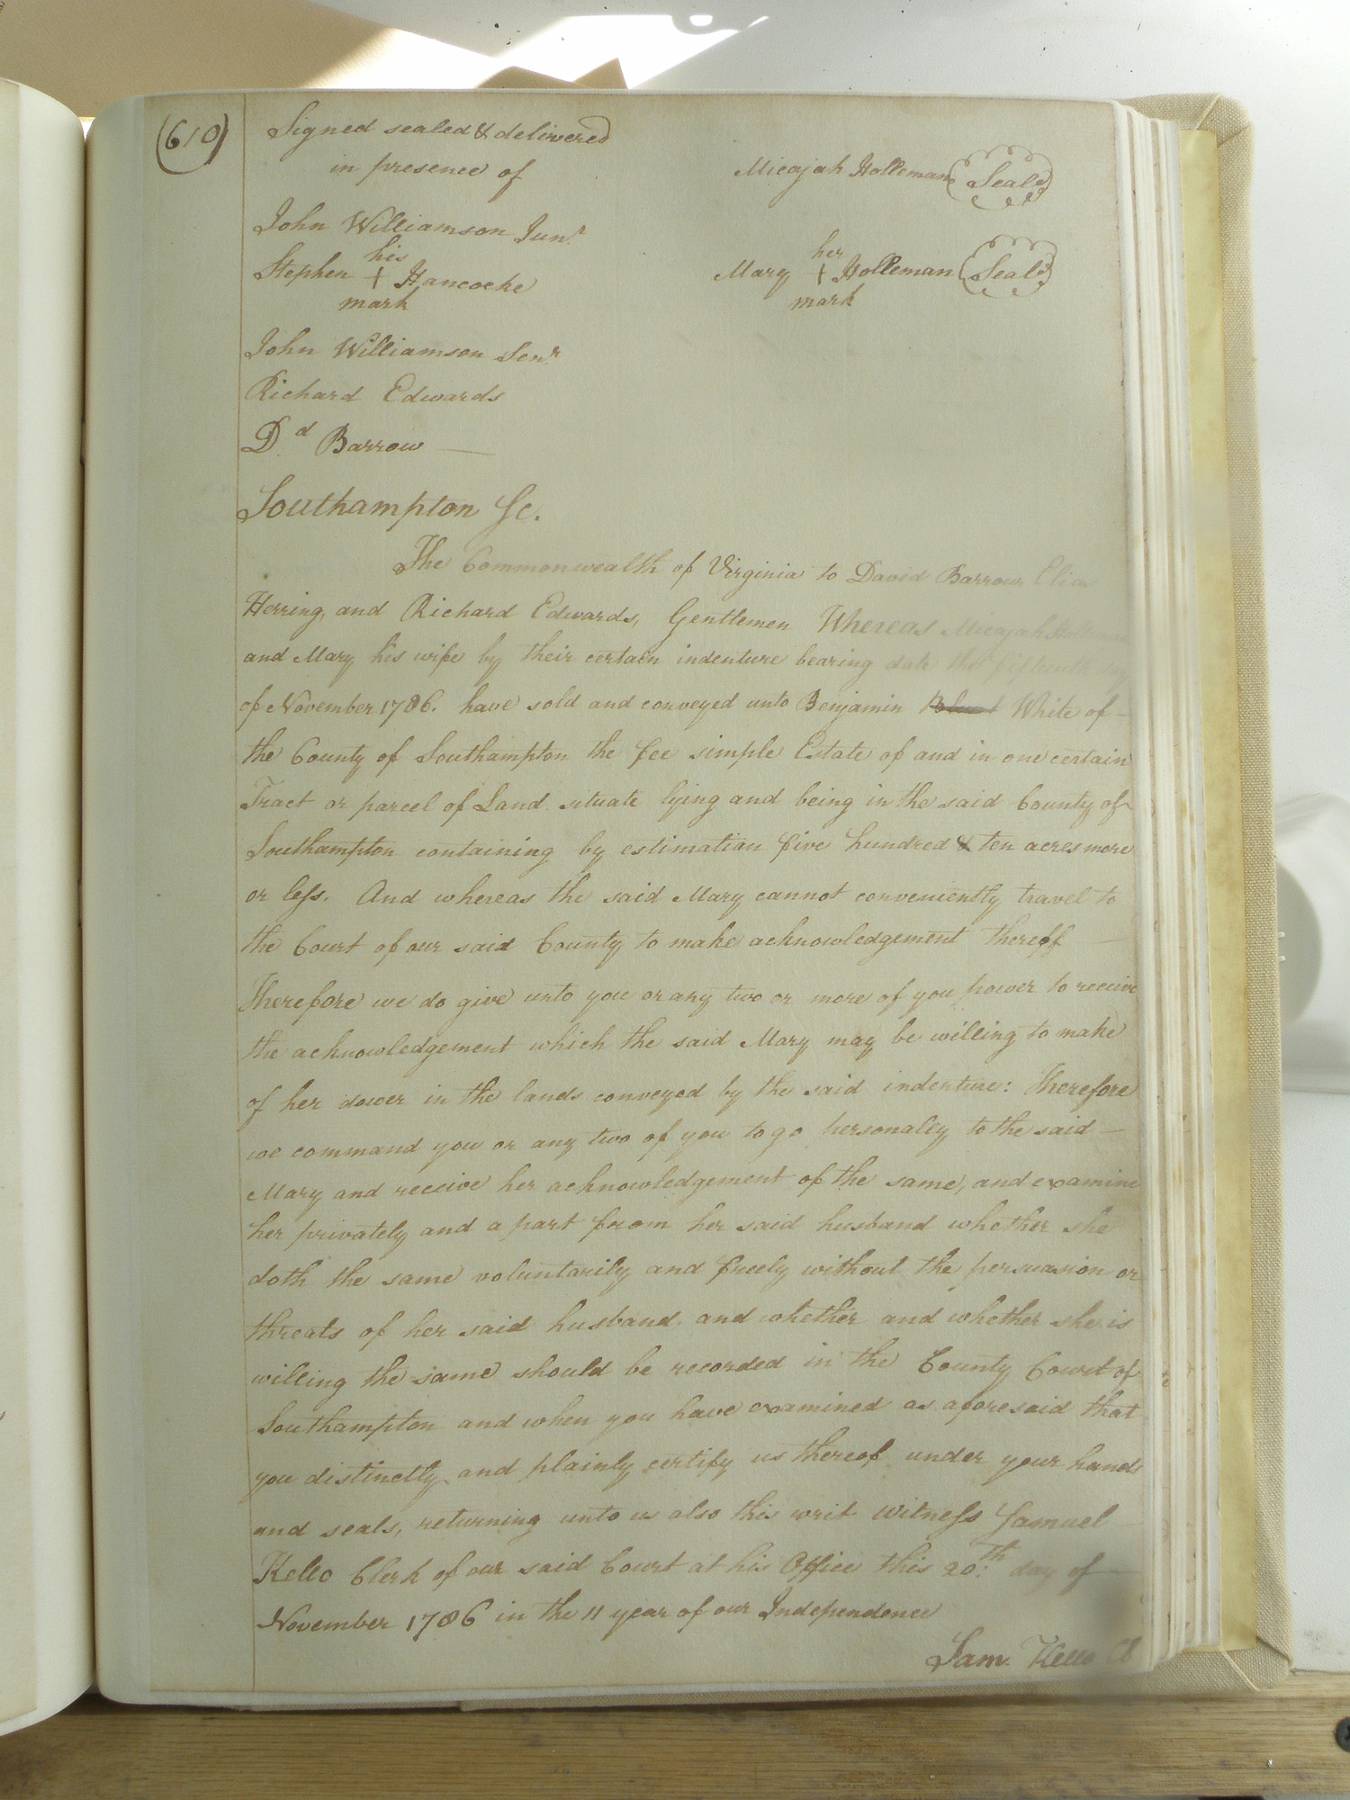 (610)
Signed sealed & delivered
in presence of
Micajah Holleman (Seal)
John Williamson Junr.
his
Stephen + Hancocke
mark
her
Mary + Holleman (Seal)
mark
John Williamson Senr.
Richard Edwards
Dd. Barrow —
Southampton Sc.
The Commonwealth of Virginia to David Barrow Elias
Herring, and Richard Edwards, Gentlemen Whereas Micajah Holleman
and Mary his wife by their certain indenture bearing date the fifteenth day
of November 1786. have sold and conveyed unto Benjamin White of —
the County of Southampton the fee simple Estate of and in one certain
Tract or parcel of Land situate lying and being in the said County of
Southampton containing by estimation five hundred & ten acres more
or less. And whereas the said Mary cannot conveniently travel to
the Court of our said County to make acknowledgement thereoff —
Therefore we do give unto you or any two or more of you power to receive
the acknowledgement which the said Mary may be willing to make
of her dower in the lands conveyed by the said indenture: Therefore
we command you or any two of you to go personally to the said —
Mary and receive her acknowledgement of the same, and examine
her privately and a part from her said husband whether she
doth the same voluntarily and freely without the persuasion or
threats of her said husband. and whether and whether she is
willing the same should be recorded in the County Court of
Southampton and when you have examined as aforesaid that
you distinctly and plainly certify us thereof under your hands
and seals, returning unto us also this writ Witness Samuel —
Kello Clerk of our said Court at his Office this 20th: day of —
November 1786 in the 11 year of our Independence
Sam. Kello Cl